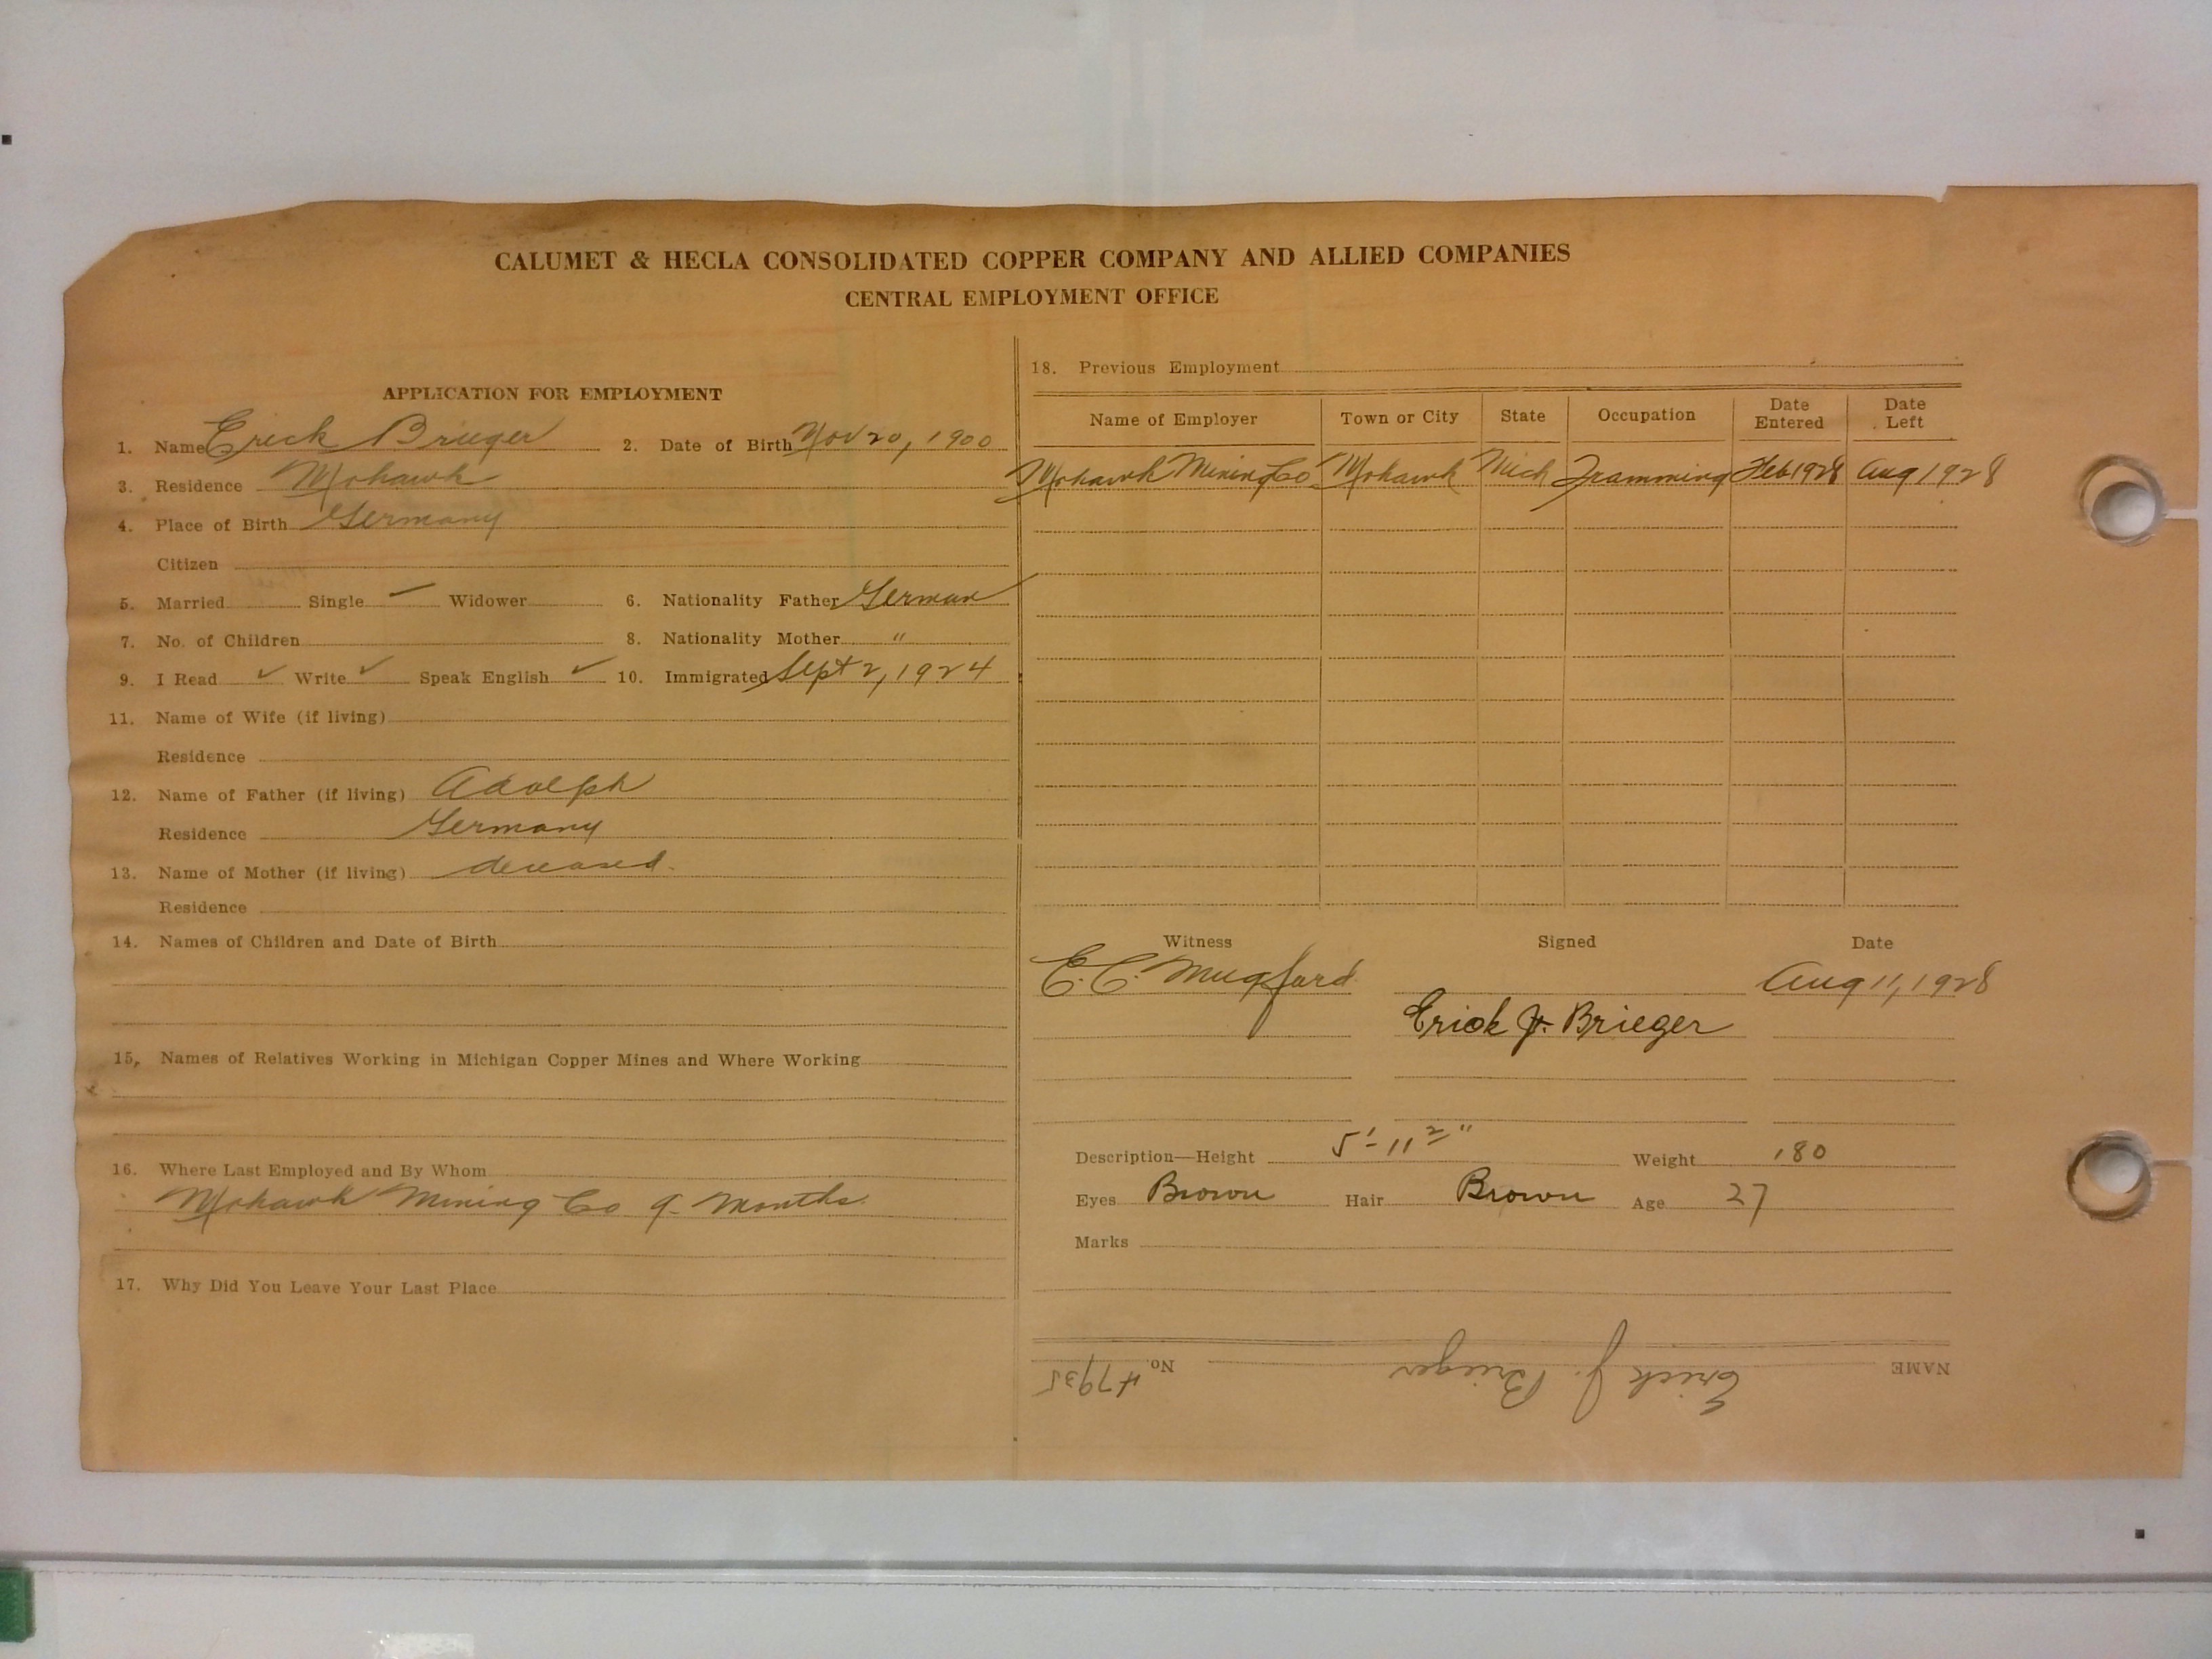 CALUMET & HECLA CONSOLIDATED COPPER COMPANY AND ALLIED COMPANIES
CENTRAL EMPLOYMENT OFFICE
APPLICATION FOR EMPLOYMENT
1. Name Erick Brieger 2. Date of Birth Nov 20, 1900
3. Residence Mohawk
4. Place of Birth Germany
Citizen
5. Married Single ✓ Widower 6. Nationality Father German
7. No. of Children 8. Nationality Mother "
9. I Read ✓ Write ✓ Speak English ✓ 10. Immigrated Sept 2, 1924
11. Name of Wife (if living)
Residence
12. Name of Father (if living) Adolph
Residence Germany
13. Name of Mother (if living) deceased.
Residence
14. Names of Children and Date of Birth
15. Names of Relatives Working in Michigan Copper Mines and Where Working
16. Where Last Employed and By Whom
Mohawk Mining Co 9 months.
17. Why Did You Leave Your Last Place
18. Previous Employment
Name of Employer Town or City State Occupation Date Entered Date Left
Mohawk Mining Co Mohawk Mich Tramming Feb 1928 Aug 1928
Witness Signed Date
E. C. Mugford Aug 11, 1928
Erick J. Brieger
Description—Height 5'-11 2" Weight 180
Eyes Brown Hair Brown Age 27
Marks
NAME Erick J. Brieger No. 47935